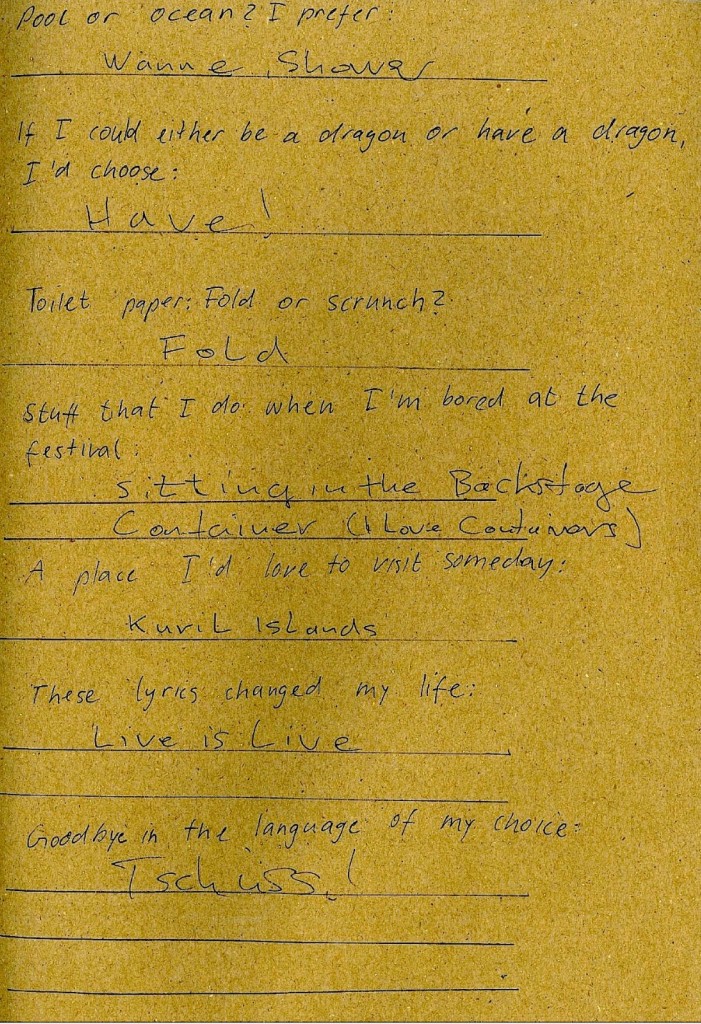 Pool or ocean? I prefer:
Wanne, Shower
If I could either be a dragon or have a dragon,
I'd choose:
Have!
Toilet paper: Fold or scrunch?
Fold
Stuff that I do when I'm bored at the
festival:
sitting in the Backstage
Container (I Love Containers)
A place I'd love to visit someday:
Kuril Islands
These lyrics changed my life:
Live is Live
Goodbye in the language of my choice:
Tschüss!